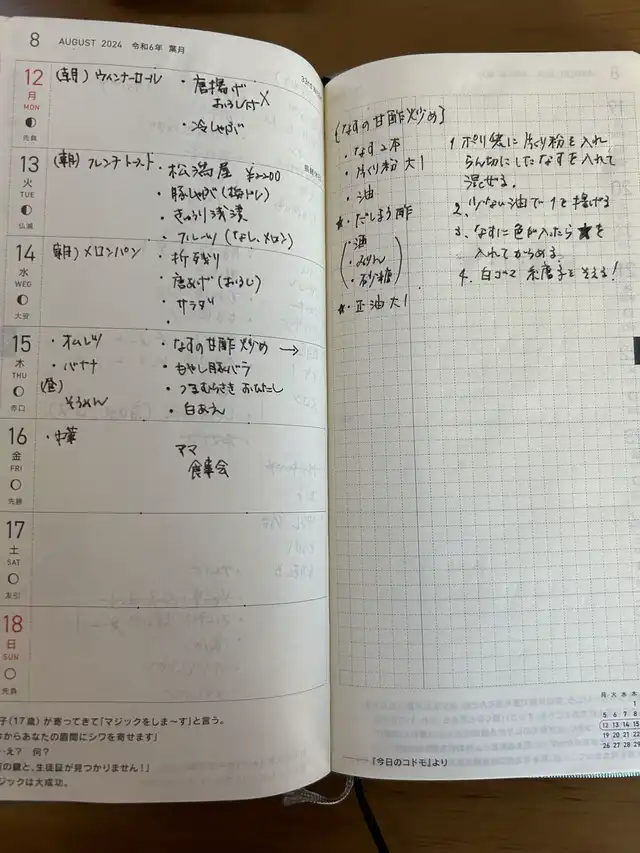 8 AUGUST 2024 令和6年 葉月
12 月 MON 先負
(朝) ウィンナーロール
・唐揚げ
おろしだれ
・冷しゃぶ
13 火 TUE 仏滅
(朝) フレンチトースト
・松濤屋 ¥2200
・豚しゃぶ (梅ドレ)
・きゅうり浅漬
・フルーツ (なし、メロン)
14 水 WED 大安
(朝) メロンパン
・折 残り
・唐あげ (おろし)
・サラダ
・
15 木 THU 赤口
・オムレツ
・バナナ
(昼)
そうめん
・なすの甘酢炒め →
・もやし豚バラ
・つるむらさき おひたし
・白あえ
16 金 FRI 先勝
・中華
ママ
食事会
17 土 SAT 友引
18 日 SUN 先負
子(17歳) が寄ってきて「マジックをしま〜す」と言う。
からあなたの眉間にシワを寄せます」
え? 何?
の鍵と、生徒証が見つかりません!」
ジックは大成功。
[なすの甘酢炒め]
・なす2本
・片くり粉 大1
・油
★・だしまろ酢
・酒
・みりん
・砂糖
★・正油大1
1 ポリ袋に片くり粉を入れ
らん切にしたなすを入れて
混ぜる。
2、少ない油で1を揚げる
3、なすに色が入ったら★を
入れてからめる。
4、白ゴマ 糸唐子をそえる!
月 火 水 木
1
5 6 7 8
12 13 14 15
19 20 21 22
26 27 28 29
『今日のコドモ』より